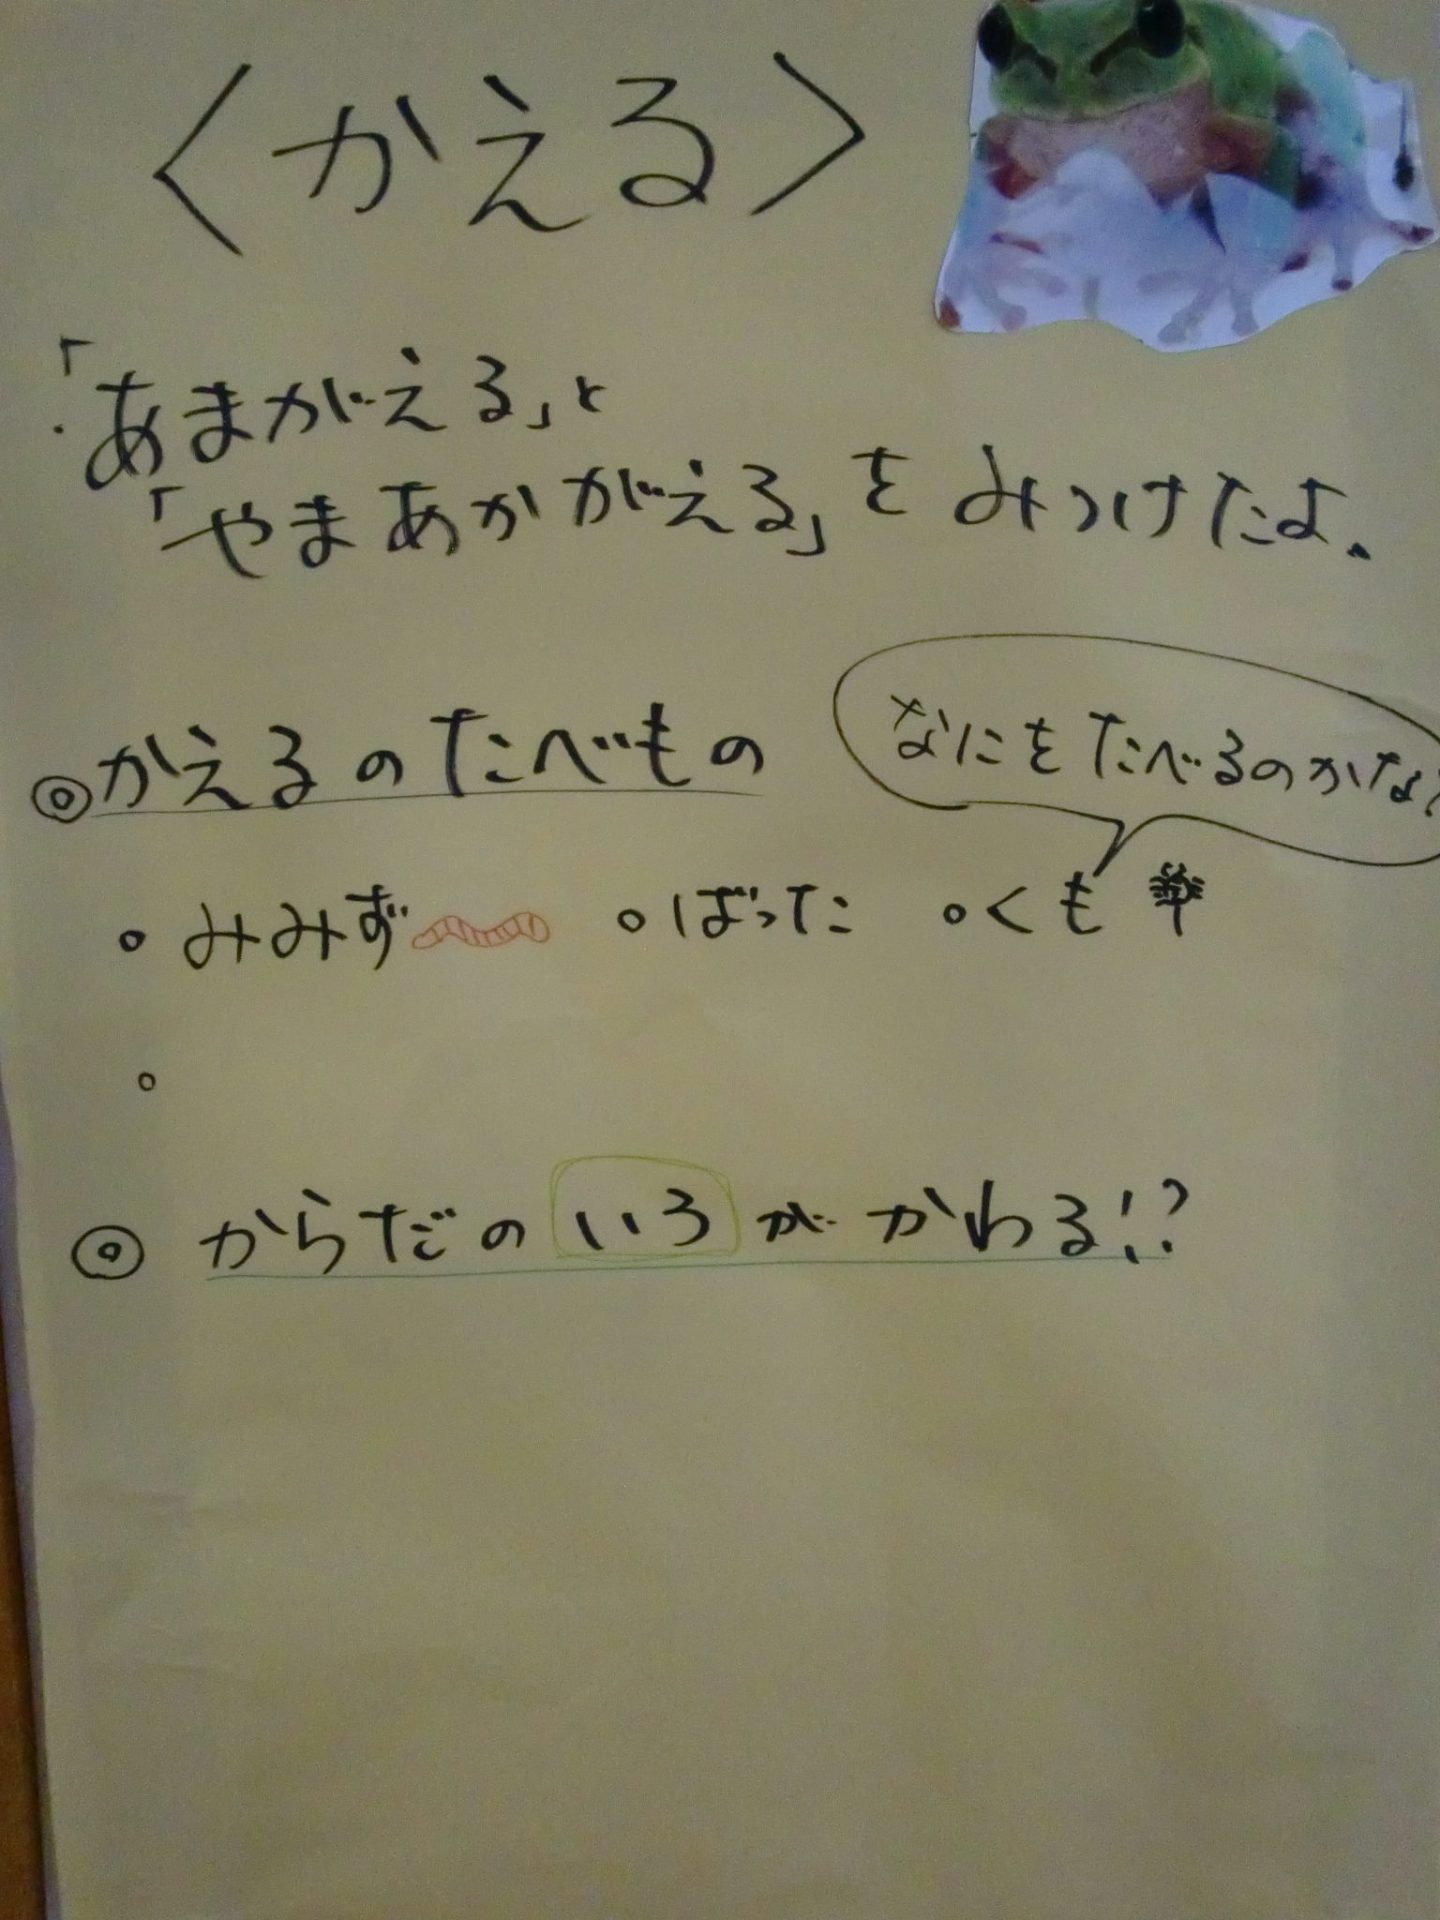 〈かえる〉
・「あまがえる」と
「やまあかがえる」をみつけたよ、
◎かえるのたべもの
なにをたべるのかな?
○みみず ○ばった ○くも
○
◎からだのいろがかわる!?